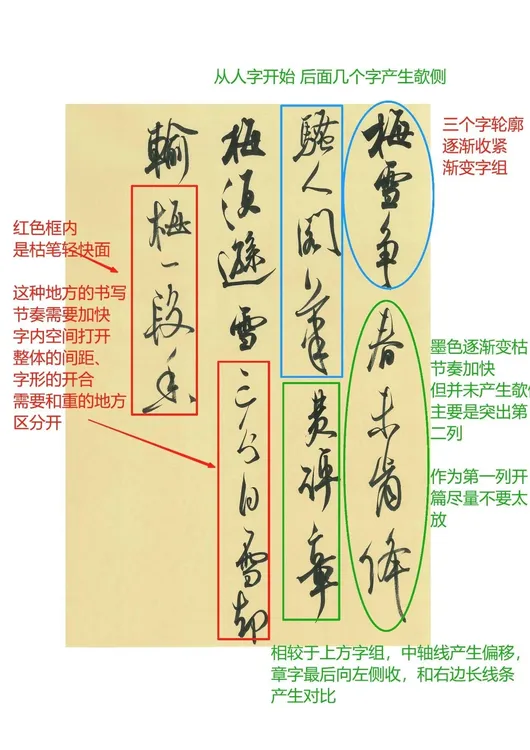 从人字开始 后面几个字产生欹侧
三个字轮廓
逐渐收紧
渐变字组
梅雪争春未肯降
骚人阁笔费评章
梅须逊雪三分白雪却
輸梅一段香
红色框内
是枯笔轻快面
这种地方的书写
节奏需要加快
字内空间打开
整体的间距、
字形的开合
需要和重的地方
区分开
墨色逐渐变枯
节奏加快
但并未产生欹
主要是突出第
二列
作为第一列开
篇尽量不要太
放
相较于上方字组，中轴线产生偏移，
章字最后向左侧收，和右边长线条
产生对比